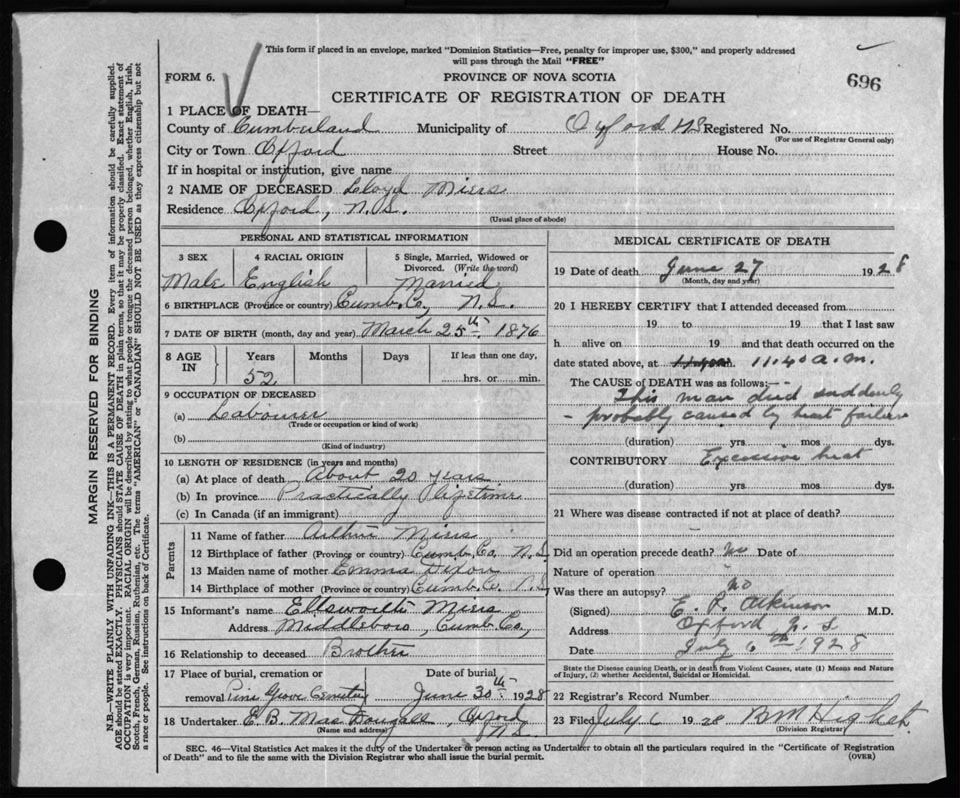 This form if placed in an envelope, marked "Dominion Statistics—Free, penalty for improper use, $300," and properly addressed
will pass through the Mail "FREE"
FORM 6.
PROVINCE OF NOVA SCOTIA
696
CERTIFICATE OF REGISTRATION OF DEATH
1 PLACE OF DEATH—
County of Cumberland Municipality of Oxford NS Registered No.
(For use of Registrar General only)
City or Town Oxford Street House No.
If in hospital or institution, give name
2 NAME OF DECEASED Lloyd Miers
Residence Oxford, N.S.
(Usual place of abode)
PERSONAL AND STATISTICAL INFORMATION
3 SEX 4 RACIAL ORIGIN 5 Single, Married, Widowed or
Divorced. (Write the word)
Male English Married
6 BIRTHPLACE (Province or country) Cumb. Co, N.S.
7 DATE OF BIRTH (month, day and year) March 25th. 1876
8 AGE IN Years Months Days If less than one day,
52 hrs. or min.
9 OCCUPATION OF DECEASED
(a) Labourer
(Trade or occupation or kind of work)
(b)
(Kind of industry)
10 LENGTH OF RESIDENCE (in years and months)
(a) At place of death About 20 years
(b) In province Practically lifetime
(c) In Canada (if an immigrant)
Parents
11 Name of father Arthur Miers
12 Birthplace of father (Province or country) Cumb. Co. N.S.
13 Maiden name of mother Emma Dixon
14 Birthplace of mother (Province or country) Cumb. Co. N.S.
15 Informant's name Ellsworth Miers
Address Middleboro, Cumb. Co,
16 Relationship to deceased Brother
17 Place of burial, cremation or Date of burial
removal Pine Grove Cemetery June 30th. 1928
18 Undertaker E. B. MacDougall, Oxford
(Name and address) N.S.
MEDICAL CERTIFICATE OF DEATH
19 Date of death June 27 1928
(Month, day and year)
20 I HEREBY CERTIFY that I attended deceased from
19 to 19 that I last saw
h alive on 19 and that death occurred on the
date stated above, at 11.40 a.m.
The CAUSE of DEATH was as follows:—
This man died suddenly
– probably caused by heart failure
(duration) yrs mos dys.
CONTRIBUTORY Excessive heat
(duration) yrs. mos. dys.
21 Where was disease contracted if not at place of death?
Did an operation precede death? No Date of
Nature of operation
Was there an autopsy? No
(Signed) E. L. Atkinson M.D.
Address Oxford N.S.
Date July 6th 1928
State the Disease causing Death, or in death from Violent Causes, state (1) Means and Nature
of Injury, (2) whether Accidental, Suicidal or Homicidal.
22 Registrar's Record Number
23 Filed July 6 1928
(Division Registrar)
SEC. 46—Vital Statistics Act makes it the duty of the Undertaker or person acting as Undertaker to obtain all the particulars required in the "Certificate of Registration
of Death" and to file the same with the Division Registrar who shall issue the burial permit. (OVER)
MARGIN RESERVED FOR BINDING
N.B.—WRITE PLAINLY WITH UNFADING INK—THIS IS A PERMANENT RECORD. Every item of information should be carefully supplied.
AGE should be stated EXACTLY. PHYSICIANS should STATE CAUSE OF DEATH in plain terms, so that it may be properly classified. Exact statement of
OCCUPATION is very important. RACIAL ORIGIN will be described by stating to what people or tongue the deceased person belonged, whether English, Irish,
Scotch, French, German, Russian, Ruthenian, etc. The terms "AMERICAN" or "CANADIAN" SHOULD NOT BE USED as they express citizenship but not
a race or people. See instructions on back of Certificate.